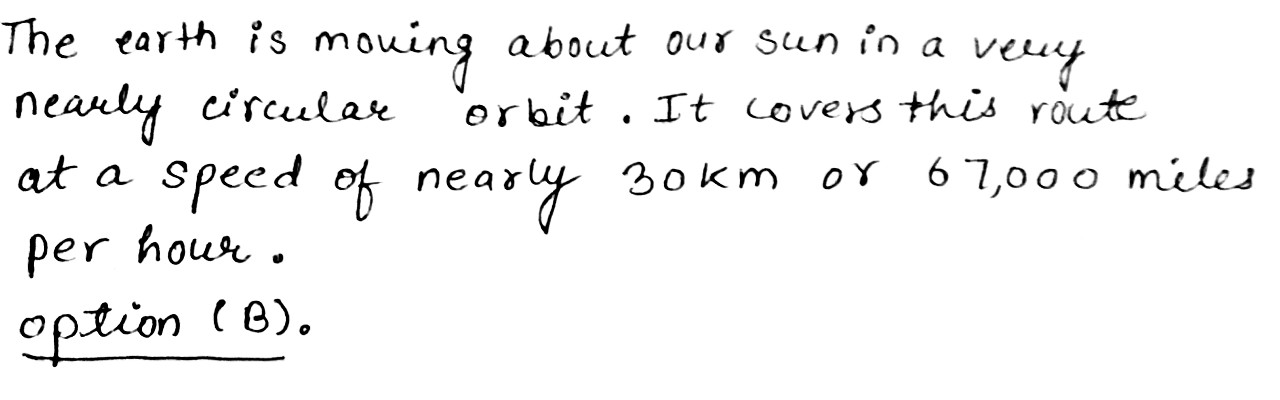 The earth is moving about our sun in a very
nearly circular orbit. It covers this route
at a speed of nearly 30km or 67,000 miles
per hour.
option (B).